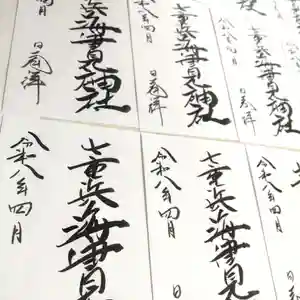 七重浜海津見神社
年四月 日奉拝
七重浜海津見神社
八年四月 日奉拝
七重浜海津見神社
令和八年四月 日奉拝
七重浜海津見
令和八年四月
七重浜海津見
令和八年四月 日
令和八年四月